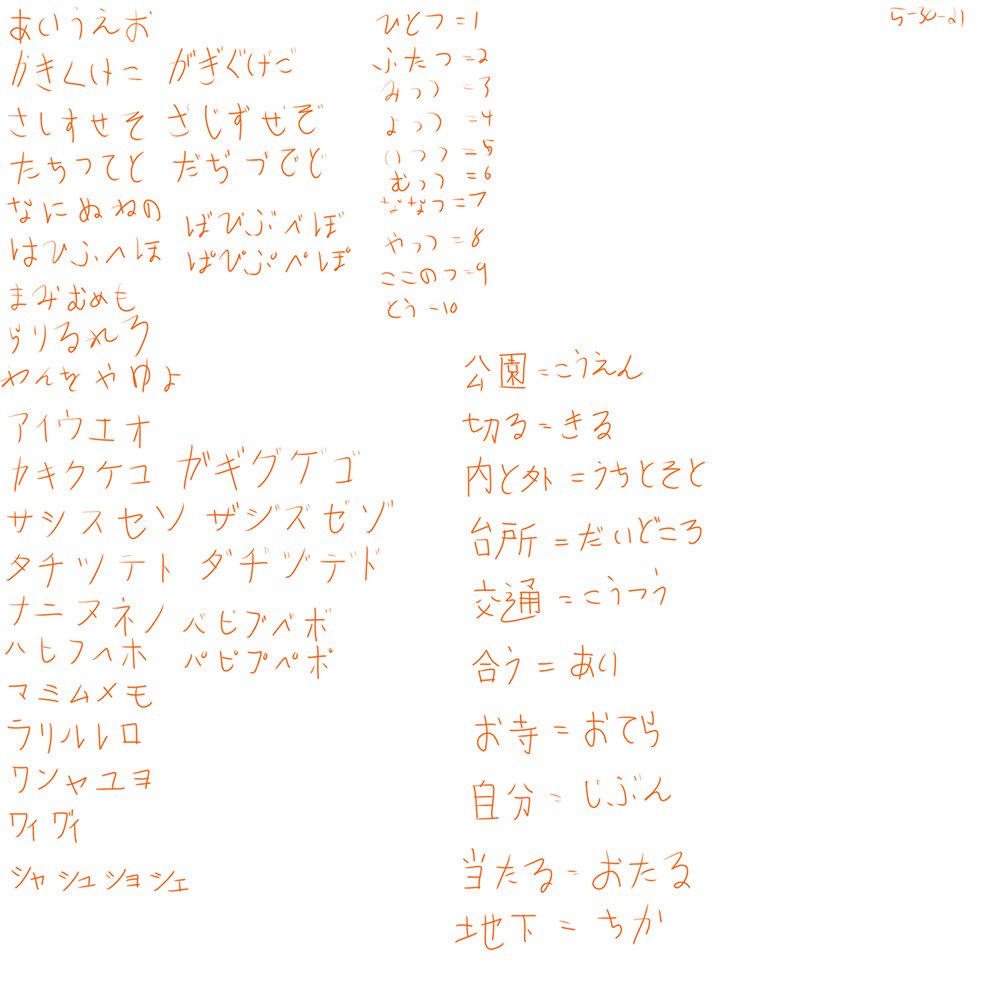 5-30-21
あいうえお
かきくけこ がぎぐげご
さしすせそ ざじずぜぞ
たちつてと だぢづでど
なにぬねの
はひふへほ
ばびぶべぼ
ぱぴぷぺぽ
まみむめも
らりるれろ
わんをやゆよ
アイウエオ
カキクケコ ガギグゲゴ
サシスセソ ザジズゼゾ
タチツテト ダヂヅデド
ナニヌネノ
ハヒフヘホ
バビブベボ
パピプペポ
マミムメモ
ラリルレロ
ワンヤユヨ
ワィ ヴィ
シャ シュ ショ シェ
ひとつ=1
ふたつ=2
みっつ=3
よっつ=4
いつつ=5
むっつ=6
ななつ=7
やっつ=8
ここのつ=9
とう=10
公園=こうえん
切る=きる
内と外=うちとそと
台所=だいどころ
交通=こうつう
合う=あい
お寺=おてら
自分=じぶん
当たる=おたる
地下=ちか